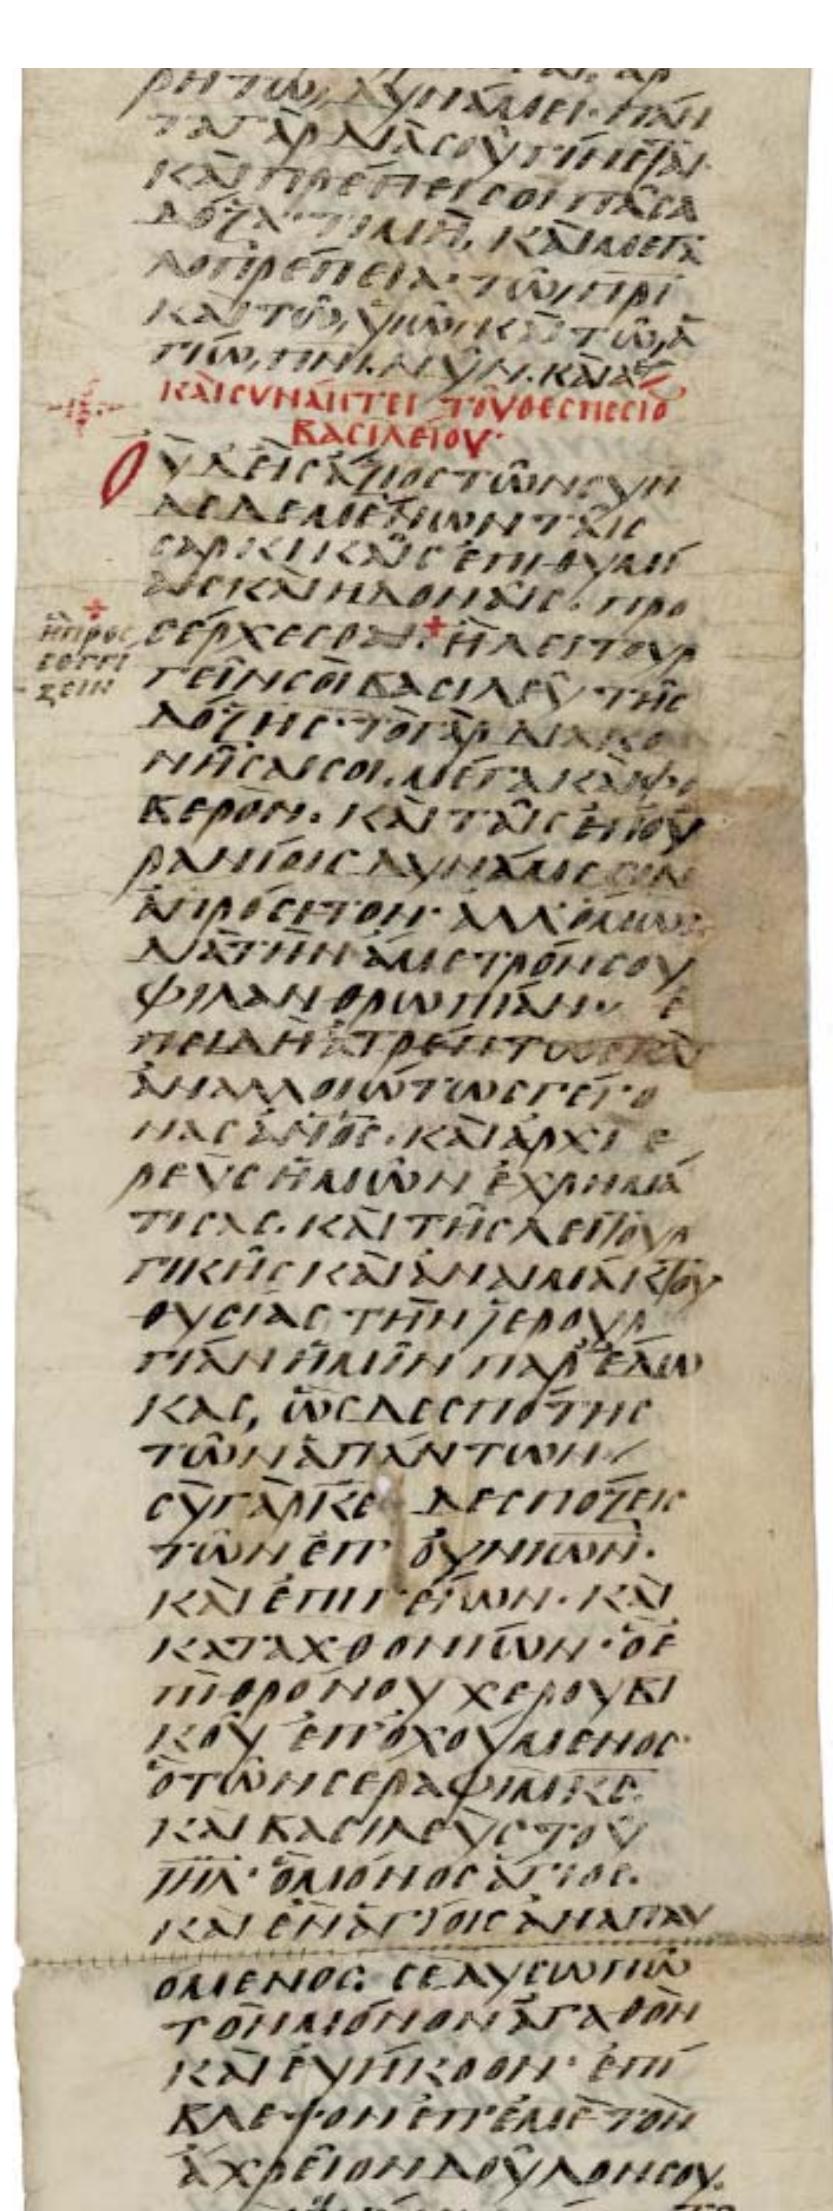 ρήτω, δυνάμει· πάν
τα γὰρ διὰ σοῦ γίνεται·
καὶ πρέπει σοι πᾶσα
δόξα· τιμὴ, καὶ μεγα
λοπρέπεια· τῶ, πρι
καὶ τῶ, υἱῶ, κ τῶ, ἁ
γίω, πνι, νῦν. καὶ ἀεὶ
καὶ συνάπτει τοῦ θεσπεσίο
βασιλείου·
Οὐδεὶς ἄξιος τῶν συν
δεδεμένων ταῖς
σαρκικαῖς ἐπιθυμί
αις καὶ ἡδοναῖς. προ
σέρχεσθαι. ἢ λειτουρ
ἢ προσ
εγγί
ζειν
γεῖν σοι βασιλεῦ τῆς
δόξης· τὸ γὰρ διακο
νῆσαι σοι. μέγα καὶ φο
βερὸν. καὶ ταῖς ἐπου
ρανίοις δυνάμεσιν
ἀπρόσιτον· ἀλλ' ὅμως
διὰ τὴν ἄμετρόν σου
φιλανθρωπίαν· ἐ
πειδὴ ἀτρέπτως καὶ
ἀναλλοιώτως γέγο
νας ἄνος. καὶ ἀρχιε
ρεὺς ἡμῶν ἐχρημά
τισας. καὶ τῆς λειτουρ
γικῆς καὶ ἀναιμάκτου
θυσίας τὴν ἱερουρ
γίαν ἡμῖν παρέδω
κας, ὡς δεσπότης
τῶν ἀπάντων
σὺ γὰρ κε δεσπόζεις
τῶν ἐπουνιων.
καὶ ἐπιγείων. καὶ
καταχθονίων· ὁ ἐ
πὶ θρόνου χερουβι
κοῦ ἐποχούμενος·
ὁ τῶν σεραφὶμ κς.
καὶ βασιλεὺς τοῦ
ιηλ· ὁ μόνος ἅγιος.
καὶ ἐν ἁγίοις ἀναπαυ
όμενος. σὲ δυσωπῶ
τὸν μόνον ἀγαθὸν
καὶ εὐήκοον· ἐπί
βλεψον ἐπ' ἐμὲ τὸν
ἀχρεῖον δοῦλόν σου.